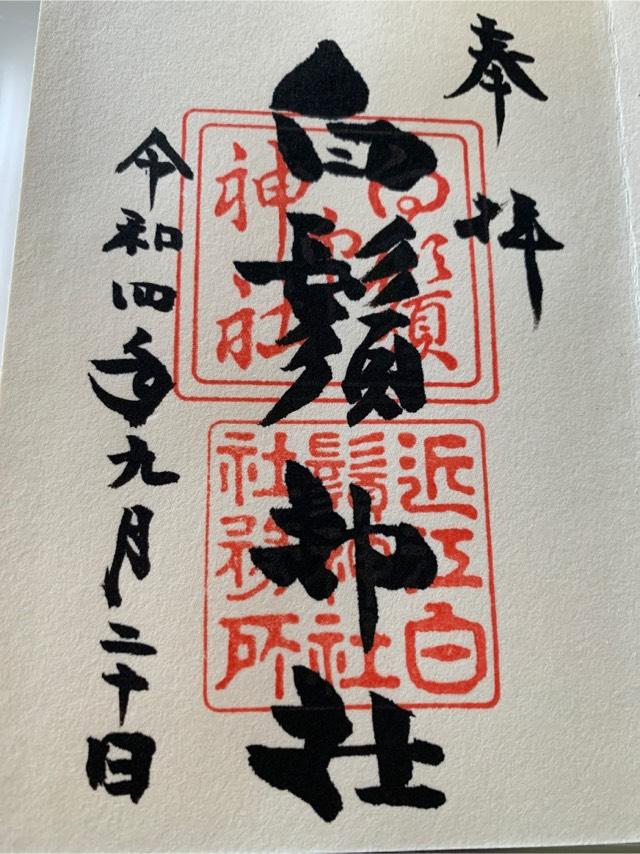 奉拝
白鬚神社
令和四年九月二十日
白鬚神社
近江白鬚神社社務所